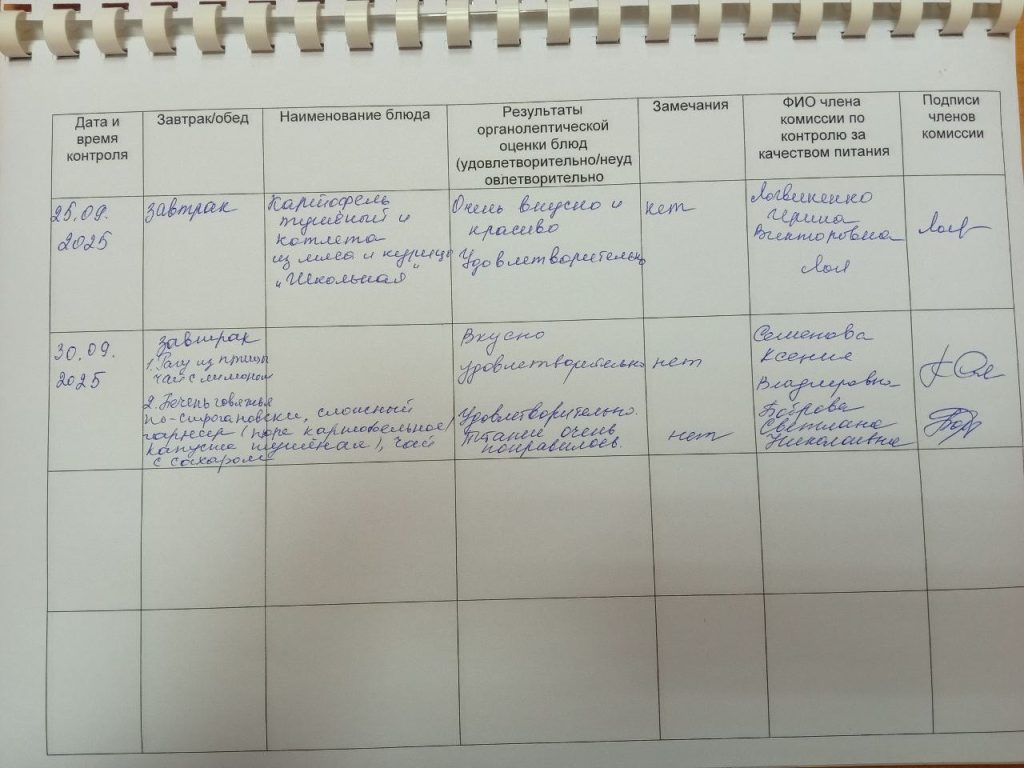 Дата и
время
контроля
Завтрак/обед
Наименование блюда
Результаты
органолептической
оценки блюд
(удовлетворительно/неуд
овлетворительно
Замечания
ФИО члена
комиссии по
контролю за
качеством питания
Подписи
членов
комиссии
25.09.
2025
завтрак
Картофель
тушёный и
котлета
из мяса и курицы
"Школьная"
Очень вкусно и
красиво
Удовлетворительно
нет
Логвиненко
Ирина
Викторовна
30.09.
2025
завтрак
1. Рагу из птицы
чай с лимоном
2. Печень говяжья
по-строгановски, сложный
гарнир (пюре картофельное,
капуста тушёная), чай
с сахаром
Вкусно
удовлетворительно
Удовлетворительно.
Питание очень
понравилось.
нет
нет
Семенова
Ксения
Владимировна
Боброва
Светлана
Николаевна